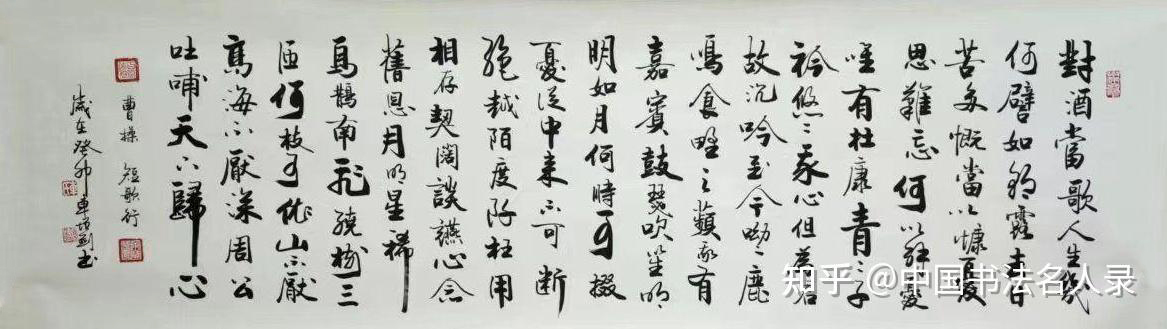 對酒當歌人生幾
何譬如朝露去日
苦多慨當以慷憂
思難忘何以解憂
唯有杜康青〻子
衿悠〻我心但為君
故沉吟至今呦〻鹿
鳴食野之蘋我有
嘉賓鼓瑟吹笙明
明如月何時可掇
憂從中來不可断
絕越陌度阡枉用
相存契闊談讌心念
舊恩月明星稀
烏鵲南飛繞樹三
匝何枝可依山不厭
高海不厭深周公
吐哺天下歸心
曹操 短歌行
歲在癸卯車书
知乎 @中国书法名人录